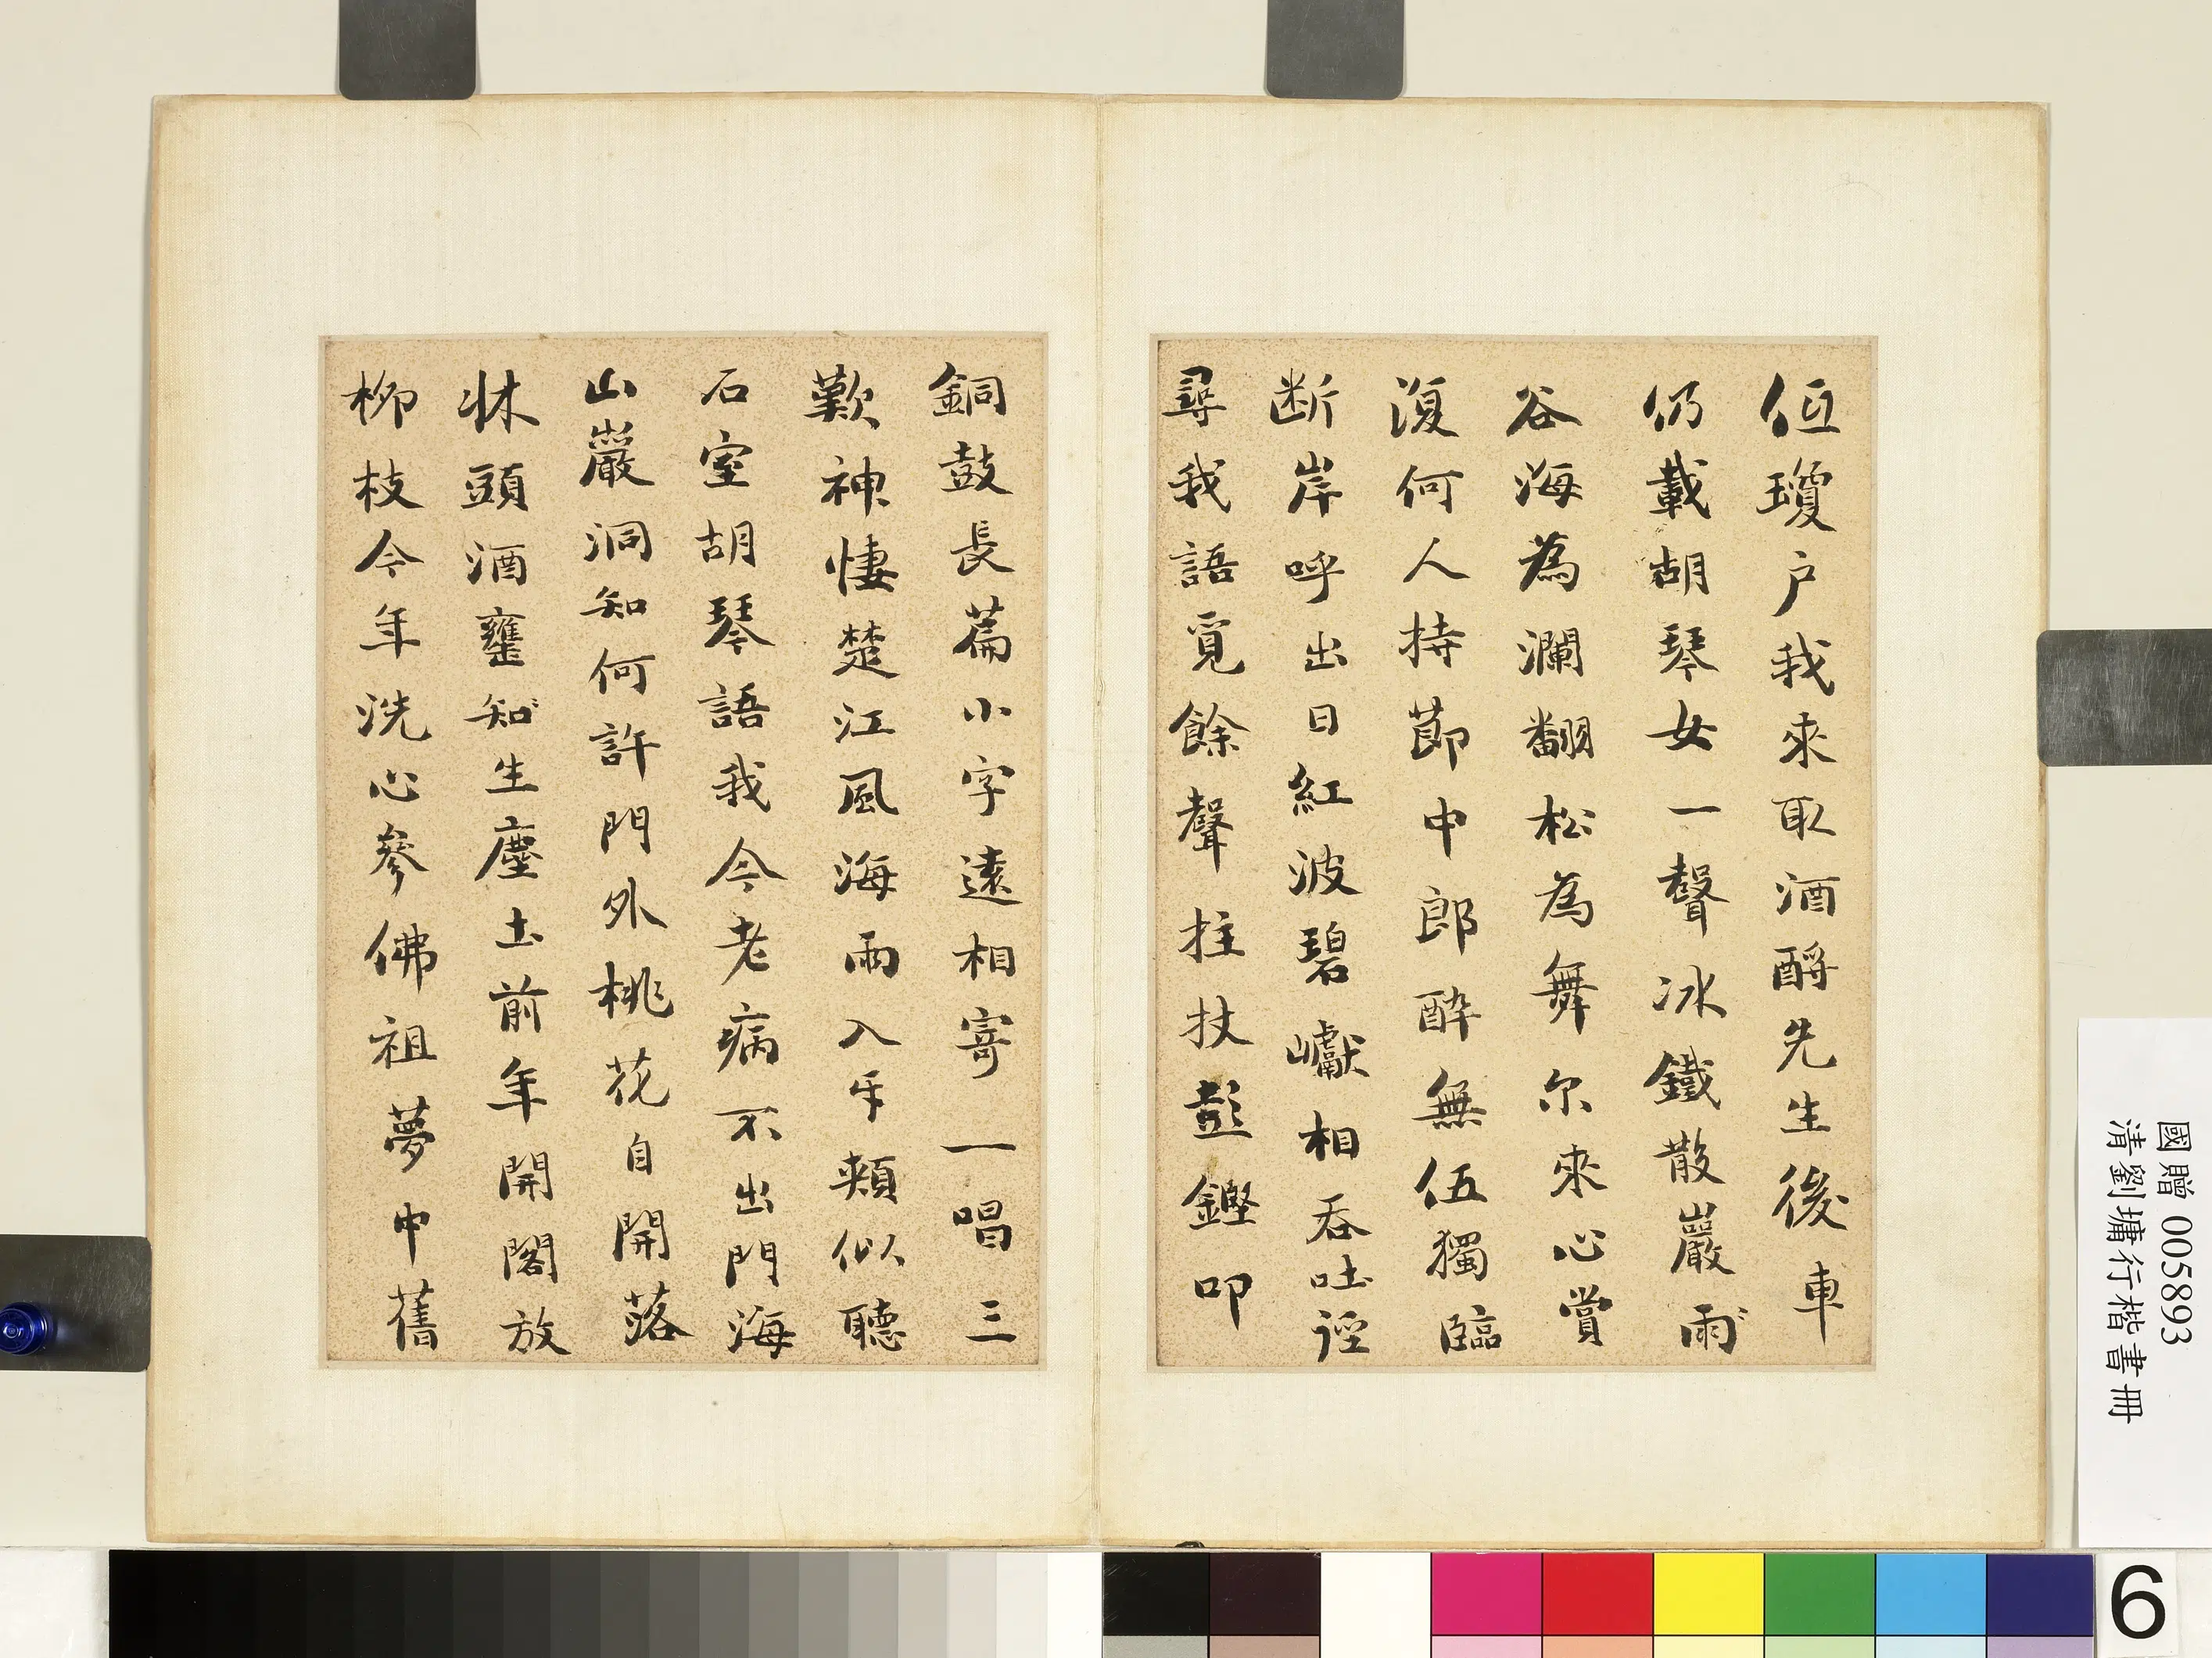 低瓊戶我來取酒酹先生後車
仍載胡琴女一聲冰鐵散巖雨
谷海為瀾翻松為舞尔來心賞
復何人持節中郎醉無伍獨臨
断岸呼出日紅波碧巘相吞吐徑
尋我語覓餘聲拄杖彭鏗叩
銅鼓長篇小字遠相寄一唱三
歎神悽楚江風海雨入牙頰似聽
石室胡琴語我今老病不出門海
山巖洞知何許門外桃花自開落
牀頭酒甕知生塵土前年開閣放
柳枝今年洗心參佛祖夢中舊
國贈 005893
清劉墉行楷書冊
6